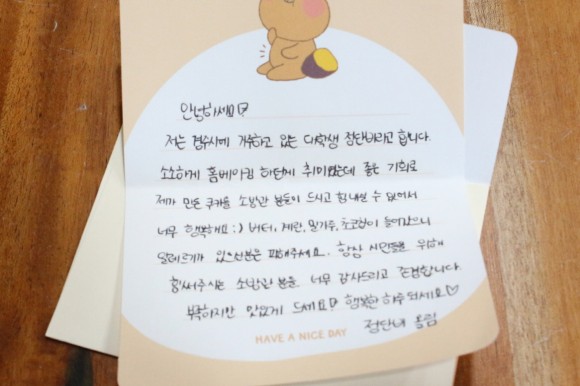 안녕하세요♡
저는 경산시에 거주하고 있는 대학생 정단비라고 합니다.
소소하게 홈베이킹 하는게 취미였는데 좋은 기회로
제가 만든 쿠키를 소방관 분들이 드시고 힘내실 수 있어서
너무 행복해요 :) 버터, 계란, 밀가루, 초코칩이 들어갔으니
알레르기가 있으신분은 피해주세요. 항상 시민들을 위해
힘써주시는 소방관 분들 너무 감사드리고 존경합니다.
부족하지만 맛있게 드세요♡ 행복한 하루 되세요♡
HAVE A NICE DAY
정단비 올림